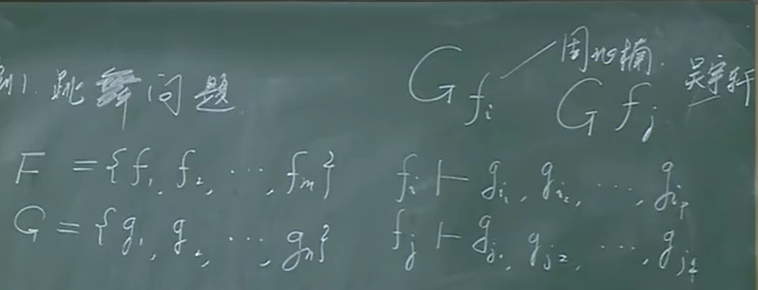 例1. 跳舞问题
F = {f₁, f₂, ⋯, fₘ}
G = {g₁, g₂, ⋯, gₙ}
G_{fᵢ} 周沁楠.
G_{fⱼ} 吴宇轩
fᵢ ⊢ g_{i₁}, g_{i₂}, ⋯, g_{i_p}
fⱼ ⊢ g_{j₁}, g_{j₂}, ⋯, g_{j_q}